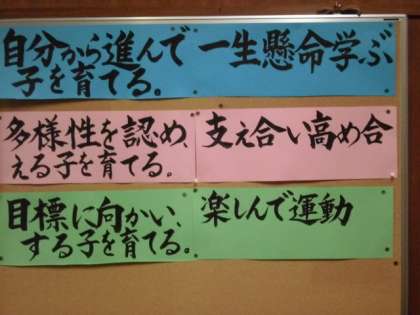 自分から進んで一生懸命学ぶ
子を育てる。
多様性を認め、支え合い高め合
える子を育てる。
目標に向かい、楽しんで運動
する子を育てる。